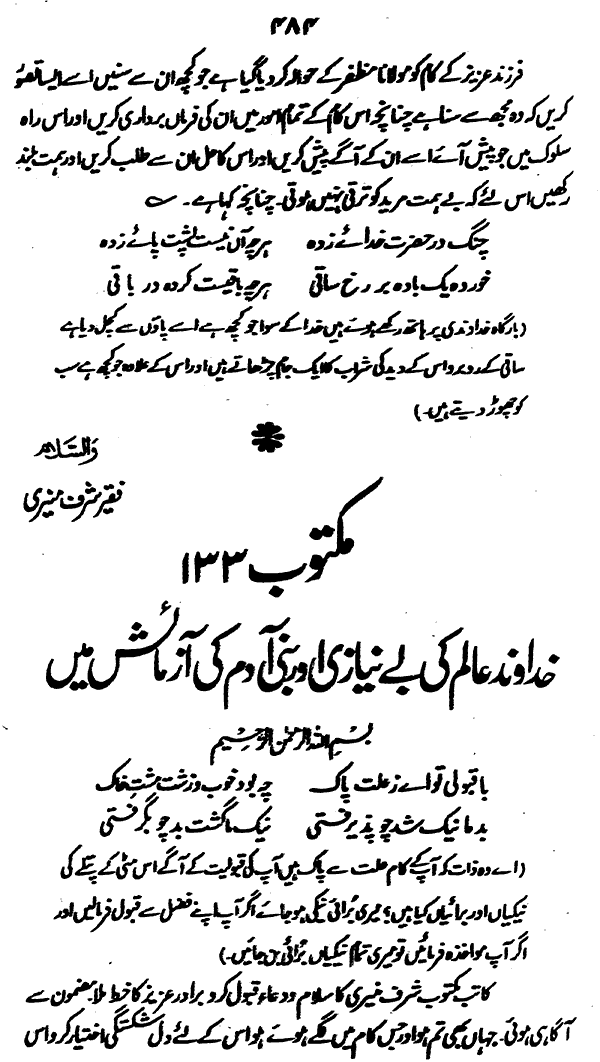 ۴۸۴
فرزند عزیز کے کام کو مولانا مظفر کے حوالہ کر دیا گیا ہے جو کچھ ان سے سنیں اسے ایسا تصور
کریں کہ وہ مجھ سے سنا ہے چنانچہ اس کام کے تمام امور میں ان کی فرماں برداری کریں اور اس راہ
سلوک میں جو پیش آئے اسے ان کے آگے پیش کریں اور اس کا حل ان سے طلب کریں اور ہمت بلند
رکھیں اس لئے کہ بے ہمت مرید کو ترقی نہیں ہوتی۔ چنانچہ کہا ہے۔
چنگ در حضرت خدائے زدہ ہر چہ آں نیست پشت پائے زدہ
خوردہ یک بادہ بر رخ ساقی ہر چہ باقیست کردہ در باقی
(بارگاہ خداوندی پر ہاتھ رکھے ہوئے ہیں خدا کے سوا جو کچھ ہے اسے پاؤں سے کچل دیا ہے
ساقی کے روبرو اس کے دید کی شراب کا ایک جام چڑھاتے ہیں اور اس کے علاوہ جو کچھ ہے سب
کو چھوڑ دیتے ہیں۔)
والسلام
فقیر شرف منیری
مکتوب ۱۳۳
خداوند عالم کی بے نیازی اور بنی آدم کی آزمائش میں
بسم اللہ الرحمن الرحیم
با قبولی تو اے ز علت پاک چہ بود خوب و زشت مشت خاک
بد ما نیک شد چو پذیرفتی نیک ما گشت بد چو بگرفتی
(اے وہ ذات کہ آپ کے کام علت سے پاک ہیں آپ کی قبولیت کے آگے اس مٹی کے پتلے کی
نیکیاں اور برائیاں کیا ہیں؟ میری برائی نیکی ہو جائے اگر آپ اپنے فضل سے قبول فرمالیں اور
اگر آپ مواخذہ فرمائیں تو میری تمام نیکیاں برائی بن جائیں۔)
کاتب مکتوب شرف منیری کا سلام و دعاء قبول کرو برادر عزیز کا خط ملا۔ مضمون سے
آگاہی ہوئی۔ جہاں بھی تم ہو اور جس کام میں لگے ہوئے ہو اس کے لئے دل شکستگی اختیار کرو اس